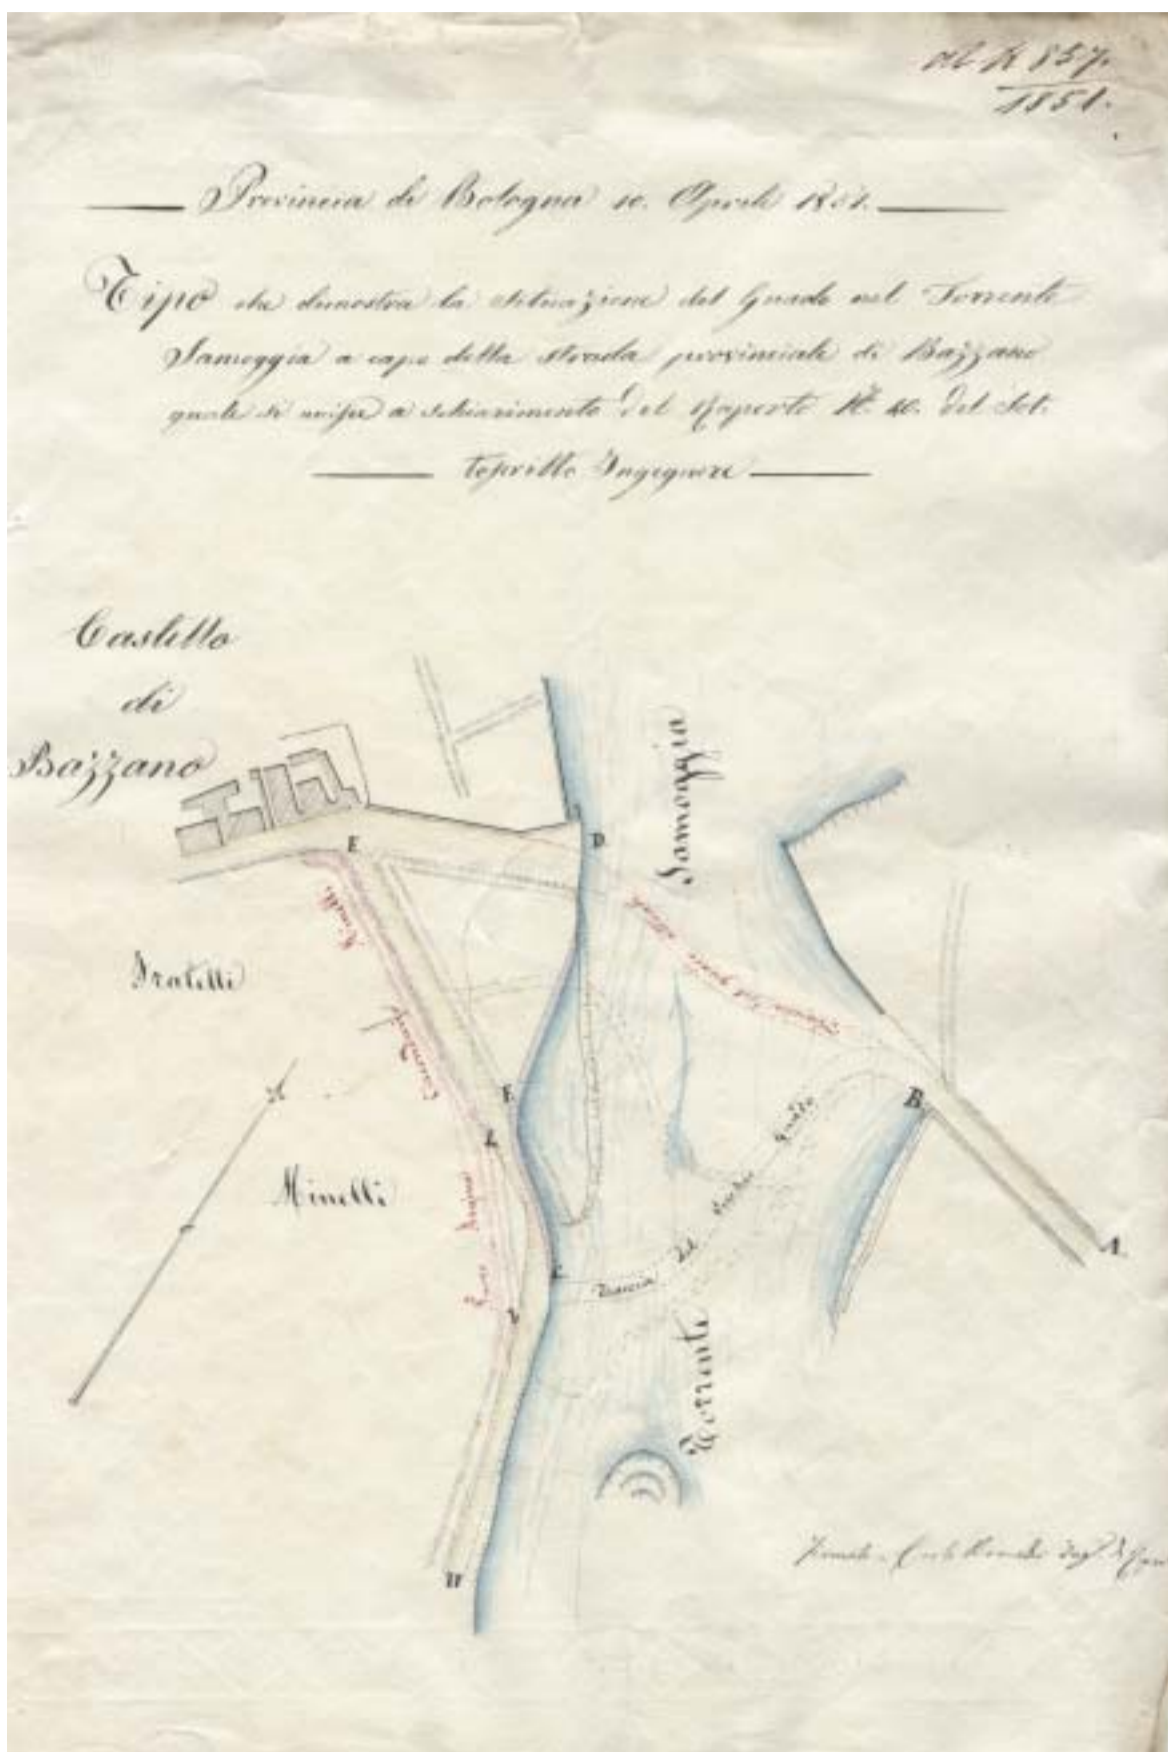 al N 857.
1851.
Provincia di Bologna 10. Aprile 1851.
Tipo che dimostra la situazione del Guado nel Torrente
Samoggia a capo della strada provinciale di Bazzano
quale si unisce a schiarimento del Raporto N. 40. del Sot.
toscritto Ingegnere
Castello
di
Bazzano
Samoggia
E
D
Minelli
Fratelli
Traccia del guado attuale
F
B
L
Traccia del Guado
Minelli
Argine
A
C
Torrente
H